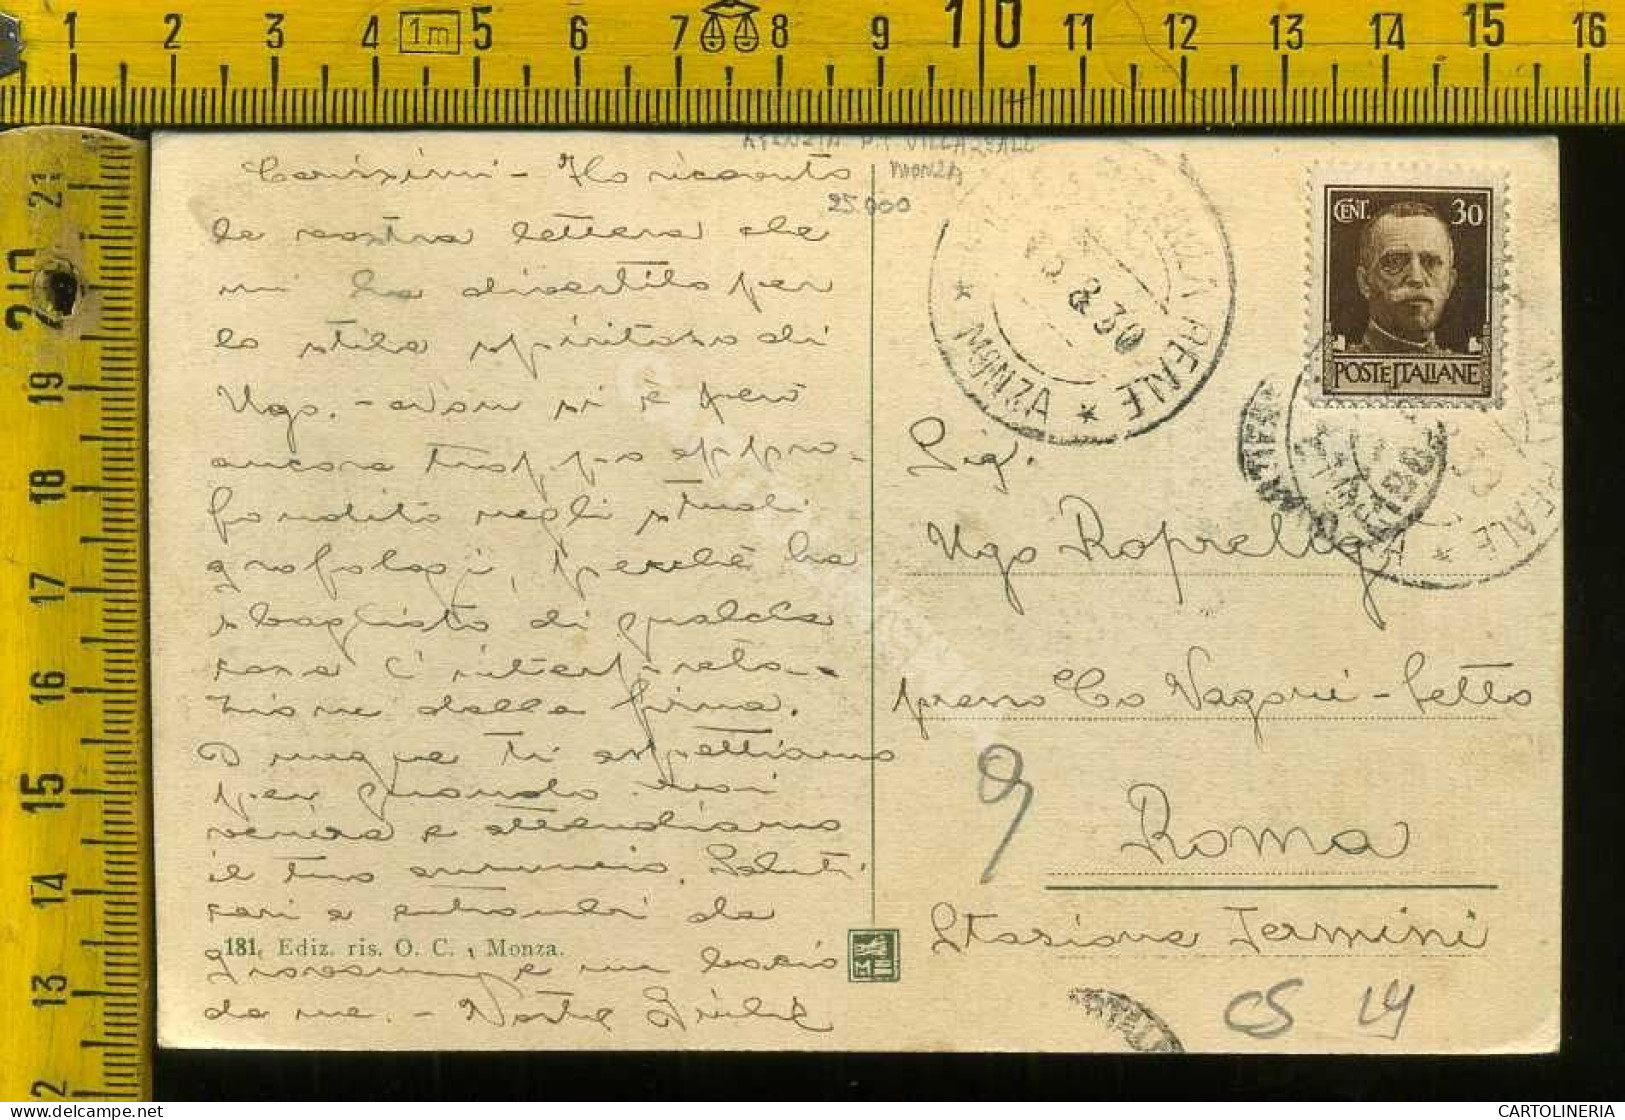 1 2 3 4 1m 5 6 7 8 9 10 11 12 13 14 15 16
21
20
19
18
17
16
15
14
13
12
AGENZIA P.T. VILLA REALE
MONZA
25.000
Carissimi - Ho ricevuto
la vostra lettera che
mi ha divertito per
lo stile spiritoso di
Ugo. - Non si è però
ancora troppo appro-
fondito negli studi
grafologi, perchè ha
sbagliato di qualche
cosa l'interpreta-
zione della firma.
Dunque ti aspettiamo
per quando
verrai e attendiamo
il tuo annuncio. Saluti
cari a entrambi da
181. Ediz. ris. O. C., Monza.
e un bacio
da me. - Vostra
VILLA REALE
* MONZA *
8 30
CENT. 30
POSTE ITALIANE
REALE *
Sig.
Ugo
presso
Roma
Stazione Termini
9
CS 14
CARTOLINERIA